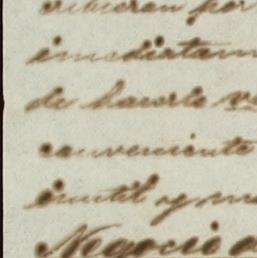 por
inmediatam
de hacerlo
conveniente
inutil y
Negocio